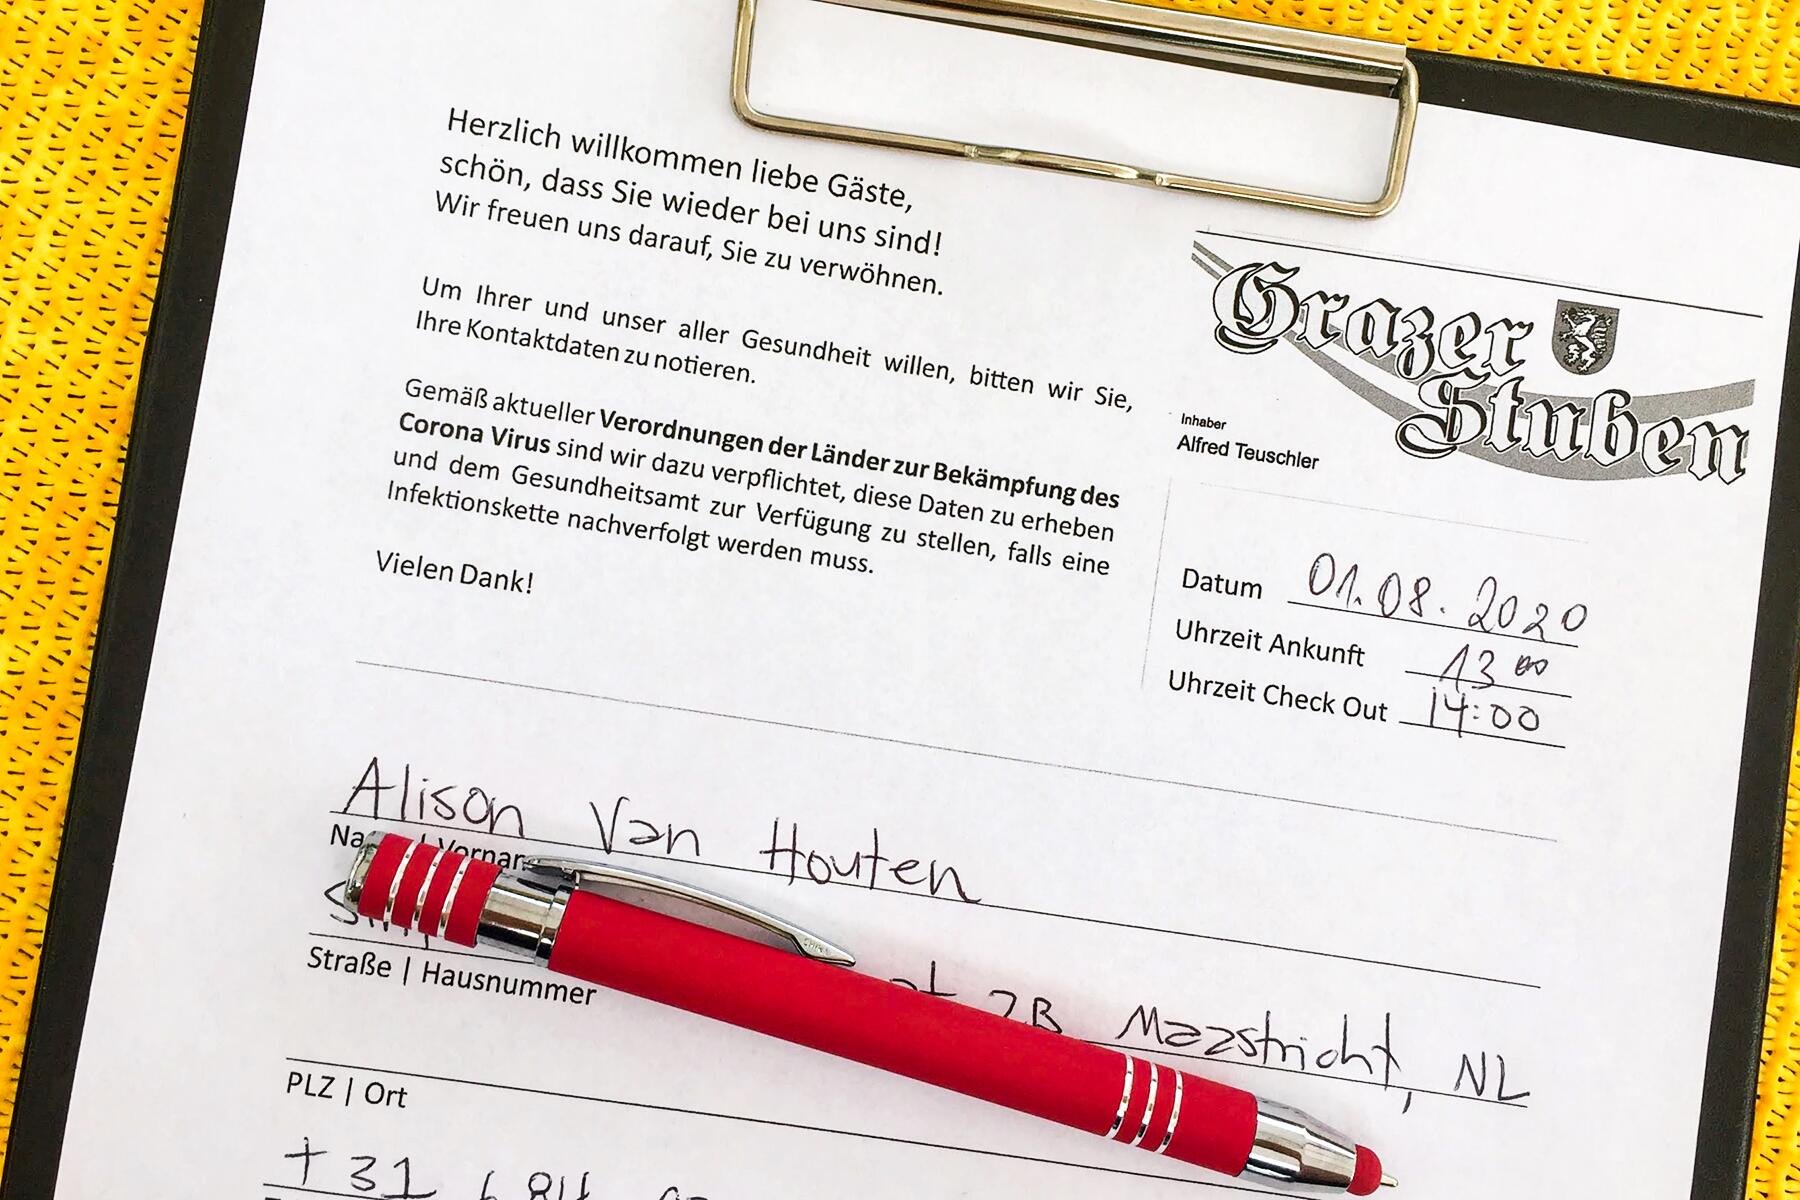 Herzlich willkommen liebe Gäste,
schön, dass Sie wieder bei uns sind!
Wir freuen uns darauf, Sie zu verwöhnen.
Um Ihrer und unser aller Gesundheit willen, bitten wir Sie,
Ihre Kontaktdaten zu notieren.
Gemäß aktueller Verordnungen der Länder zur Bekämpfung des
Corona Virus sind wir dazu verpflichtet, diese Daten zu erheben
und dem Gesundheitsamt zur Verfügung zu stellen, falls eine
Infektionskette nachverfolgt werden muss.
Vielen Dank!
Grazer
Stuben
Inhaber
Alfred Teuschler
Datum 01.08.2020
Uhrzeit Ankunft 13 00
Uhrzeit Check Out 14:00
Alison Van Houten
2B Maastricht, NL
Straße | Hausnummer
PLZ | Ort
+31